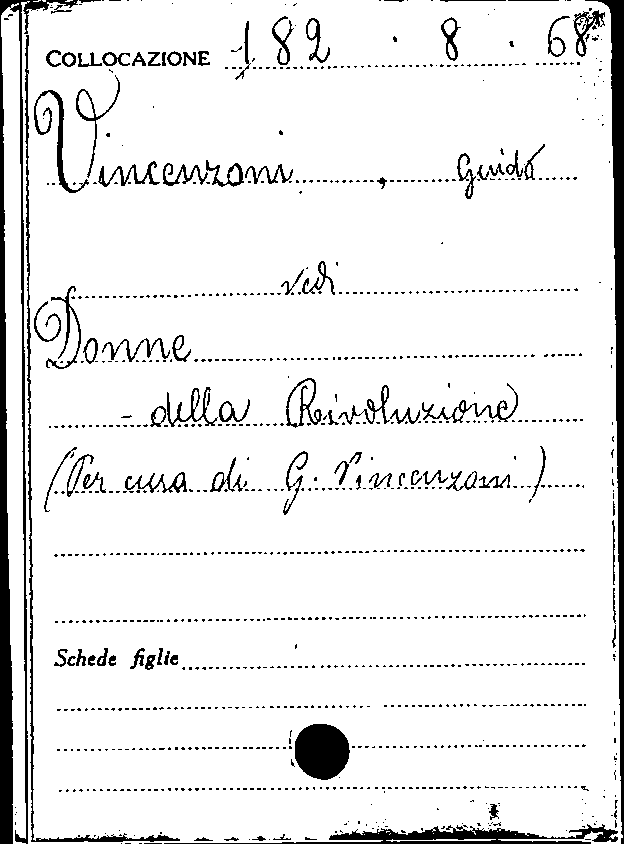 COLLOCAZIONE 182 . 8 . 68
Vincenzoni, Guido
vedi
Donne
- della Rivoluzione
(Per cura di G. Vincenzoni)
Schede figlie